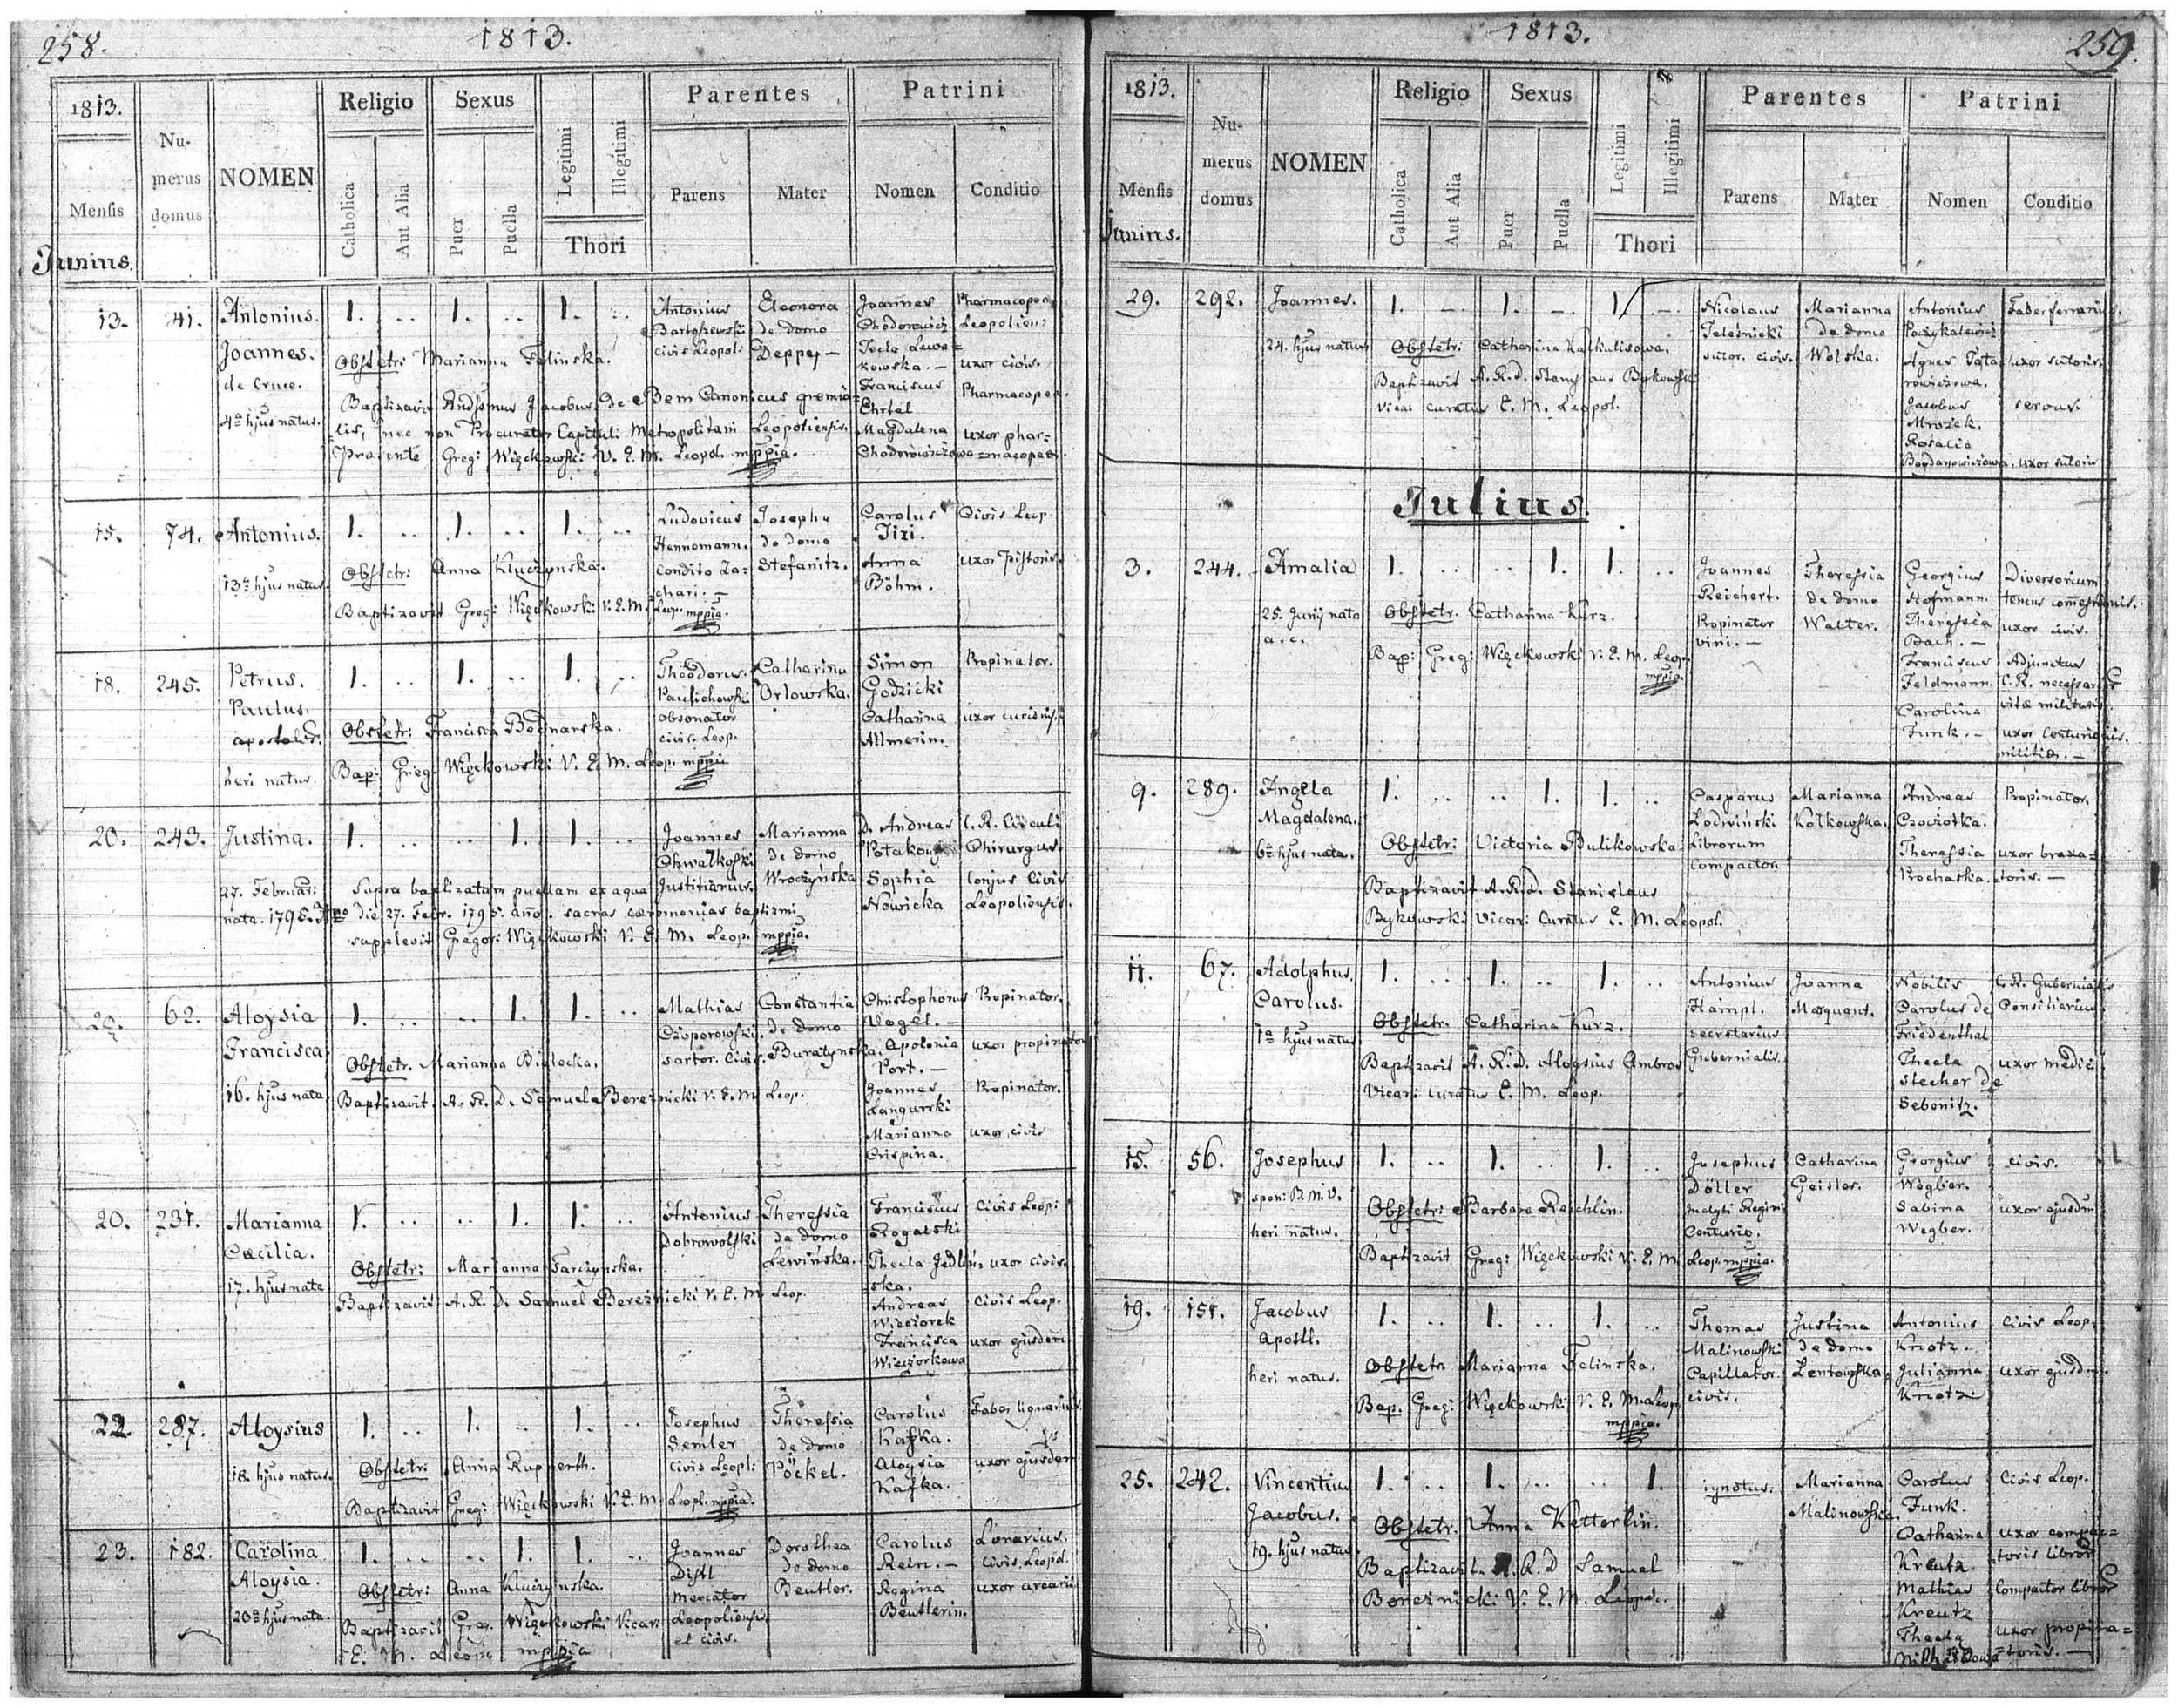 258.
1813.
1813.
Numerus domus
NOMEN
Religio
Sexus
Parentes
Patrini
Mensis
Catholica
Aut Alia
Puer
Puella
Legitimi
Illegitimi
Thori
Parens
Mater
Nomen
Conditio
Junius.
13.
41.
Antonius.
Joannes.
de Cruce.
4ta hjus natus.
1. .. 1. .. 1. ..
Obstetr: Marianna Felinska.
Baptizavit Jacobus de Bem Canonicus gremia=
lis, nec non Procurator Capituli Metropolitani Leopoliensis.
Praesente Greg: Więckowski V. E. M. Leopol. mppia.
Antonius
Bartoszewski
civis Leopol:
Eleonora
de domo
Joannes
Chodorowicz
Tecla Lewa=
kowska. —
Franciscus
Ehrtel
Magdalena
Chodorowiczowa
Pharmacopea
Leopolien:
uxor civis.
Pharmacopea.
uxor phar=
=macopeae.
15.
74.
Antonius.
13ta hjus natus.
1. .. 1. .. 1. ..
Obstetr: Anna Kluczynska.
Baptizavit Greg: Więckowski V. E. M. Leop. mppia.
Ludovicus
Hennemann.
Condito Za=
chari. —
Josepha
de domo
Stefanitz.
Carolus
Tizi.
Anna
Böhm.
Civis Leop.
uxor Pistoris.
18.
245.
Petrus.
Paulus.
heri natus.
1. .. 1. .. 1. ..
Obstetr: Francisca Bednarska.
Bap: Greg: Więckowski V. E. M. Leop. mppia
Theodorus.
obsonator
civis Leop.
Catharina
Orlowska.
Simon
Godzicki
Catharina
Allmerin.
Propinator.
20.
243.
Justina.
27. Februar:
nata. 1795.
1. .. .. 1. 1. ..
Supra baptizatam puellam ex aqua
die 27. Febr. 1795. año. sacras caeremonias baptizmi
supplevit Gregor: Więckowski V. E. M. Leop. mppia.
Joannes
Chwalkoski
Justitiarius.
Marianna
de domo
Wroczyńska
D. Andreas
Sophia
Nowicka
C. R. Circuli
Chirurgus.
Conjux Civis
Leopoliensis.
62.
Aloysia
Francisca
16. hjus nata.
1. .. .. 1. 1. ..
Obstetr. Marianna Bielecka.
Baptizavit. A. R. D. Samuel Bereźnicki V. E. M. Leop.
Mathias
Czoporowski.
sartor. Civis.
Constantia
de domo
Buratynska.
Christophorus
Vogel. —
Apolonia
Port. —
Joannes
Langurski
Marianna
Crispina.
Propinator.
uxor propinator
Propinator.
uxor civis
20.
231.
Marianna
Caecilia.
17. hjus nata
1. .. .. 1. 1. ..
Obstetr: Marianna Tarczynska.
Baptizavit A. R. D. Samuel Bereźnicki V. E. M. Leop.
Antonius
Dobrowolski
Theressia
de domo
Lewińska.
Franciscus
Rogalski
Thecla Jedlin=
ska.
Andreas
Wieczorek
Francisca
Wieczorkowa
Civis Leop:
uxor civis.
civis Leop.
uxor ejusdem
22.
287.
Aloysius
18. hjus natus.
1. .. 1. .. 1. ..
Obstetr. Anna Rupperth.
Baptizavit Greg: Więckowski V. E. M. Leopl. mppia.
Josephus
Semler
civis Leopl:
Theressia
de domo
Pöckel.
Carolus
Kafka.
Aloysia
Kafka.
Faber lignarius
uxor ejusdem
23.
182.
Carolina
Aloysia.
20ta hjus nata.
1. .. .. 1. 1. ..
Obstetr: Anna Kluczynska.
Baptizavit Greg. Więckowski Vicar:
E. M. Leop. mppia
Joannes
Distl
mercator
Leopoliensis
et civis.
Dorothea
de domo
Beutler.
Carolus
Rein. —
Regina
Beutlerin.
civis. Leopol.
1813.
259.
1813.
Numerus domus
NOMEN
Religio
Sexus
Parentes
Patrini
Mensis
Catholica
Aut Alia
Puer
Puella
Legitimi
Illegitimi
Thori
Parens
Mater
Nomen
Conditio
Junius.
29.
292.
Joannes.
24. hjus natus
1. — 1. — 1. —
Obstetr: Catharina Kalkulisowa.
Baptizavit A. R. D. Stanislaus Bykowski
Vicar: curatus E. M. Leopol.
Nicolaus
Telesnicki
sutor. civis.
Marianna
de domo
Wolska.
Antonius
Agnes Tata=
rowiczowa.
Jacobus
Mrozek.
Rosalia
Bogdanowiczowa.
Faber ferrarius.
uxor sutoris.
servus.
uxor sutoris
Julius.
3.
244.
Amalia
25. Junij nata
a. c.
1. .. .. 1. 1. ..
Obstetr. Catharina Kurz.
Bap: Greg: Więckowski V. E. M. Leop.
mppia.
Joannes
Reichert.
Propinator
vini. —
Theressia
de domo
Walter.
Georgius
Hofmann.
Theressia
Bach. —
Franciscus
Feldmann.
Carolina
Funk. —
Diversorium
uxor civis.
Adjunctus
C. R. necessar
vitae militaris.
uxor Centurionis.
militiae. —
9.
289.
Angela
Magdalena.
6ta hjus nata.
1. .. .. 1. 1. ..
Obstetr: Victoria Bulikowska.
Baptizavit A. R. D. Stanislaus
Bykowski Vicari: Curatus E. M. Leopol.
Casparus
Lodwiński
Librorum
compactor.
Marianna
Kolkowska.
Andreas
Theressia
Prochaska.
Propinator.
uxor braxa=
toris. —
11.
67.
Adolphus.
Carolus.
1a hjus natus
1. .. 1. .. 1. ..
Obstetr. Catharina Kurz.
Baptizavit A. R. D. Aloysius Ambros
Vicari: curatus E. M. Leop.
Antonius
Hampl.
secretarius
Gubernialis.
Joanna
Masquant.
Nobilis
Carolus de
Friedenthal
Thecla
Stecher de
Sebenitz.
C. R. Gubernialis
Consiliarius.
uxor medici
15.
56.
Josephus
spon: B. M. V.
heri natus.
1. .. 1. .. 1. ..
Obstetr: Barbara Reichlin.
Baptizavit Greg: Więckowski V. E. M. Leop. mppia.
Josephus
Döller
Centurio.
Catharina
Geisler.
Georgius
Wegber.
Sabina
Wegber.
civis.
uxor ejusdm
19.
151.
Jacobus
Apostl.
heri natus.
1. .. 1. .. 1. ..
Obstetr. Marianna Felinska.
Bap. Greg: Więckowski V. E. M. Leop.
mppia.
Thomas
Malinowski
Capillator.
civis.
Justina
de domo
Lentowska.
Antonius
Knotz.
Julianna
Knotz
Civis Leop.
uxor ejusdm.
25.
242.
Vincentius
Jacobus.
19. hjus natus.
1. .. 1. .. .. 1.
Obstetr. Anna Ketterlin.
Baptizavit A. R. D Samuel
Bereźnicki V. E. M. Leopol.
ignotus.
Marianna
Malinowska.
Carolus
Funk.
Catharina
Kreutz
Mathias
Kreutz
Thecla
Civis Leop.
uxor compac=
toris libror
Compactor libror
uxor propina=
=toris. —